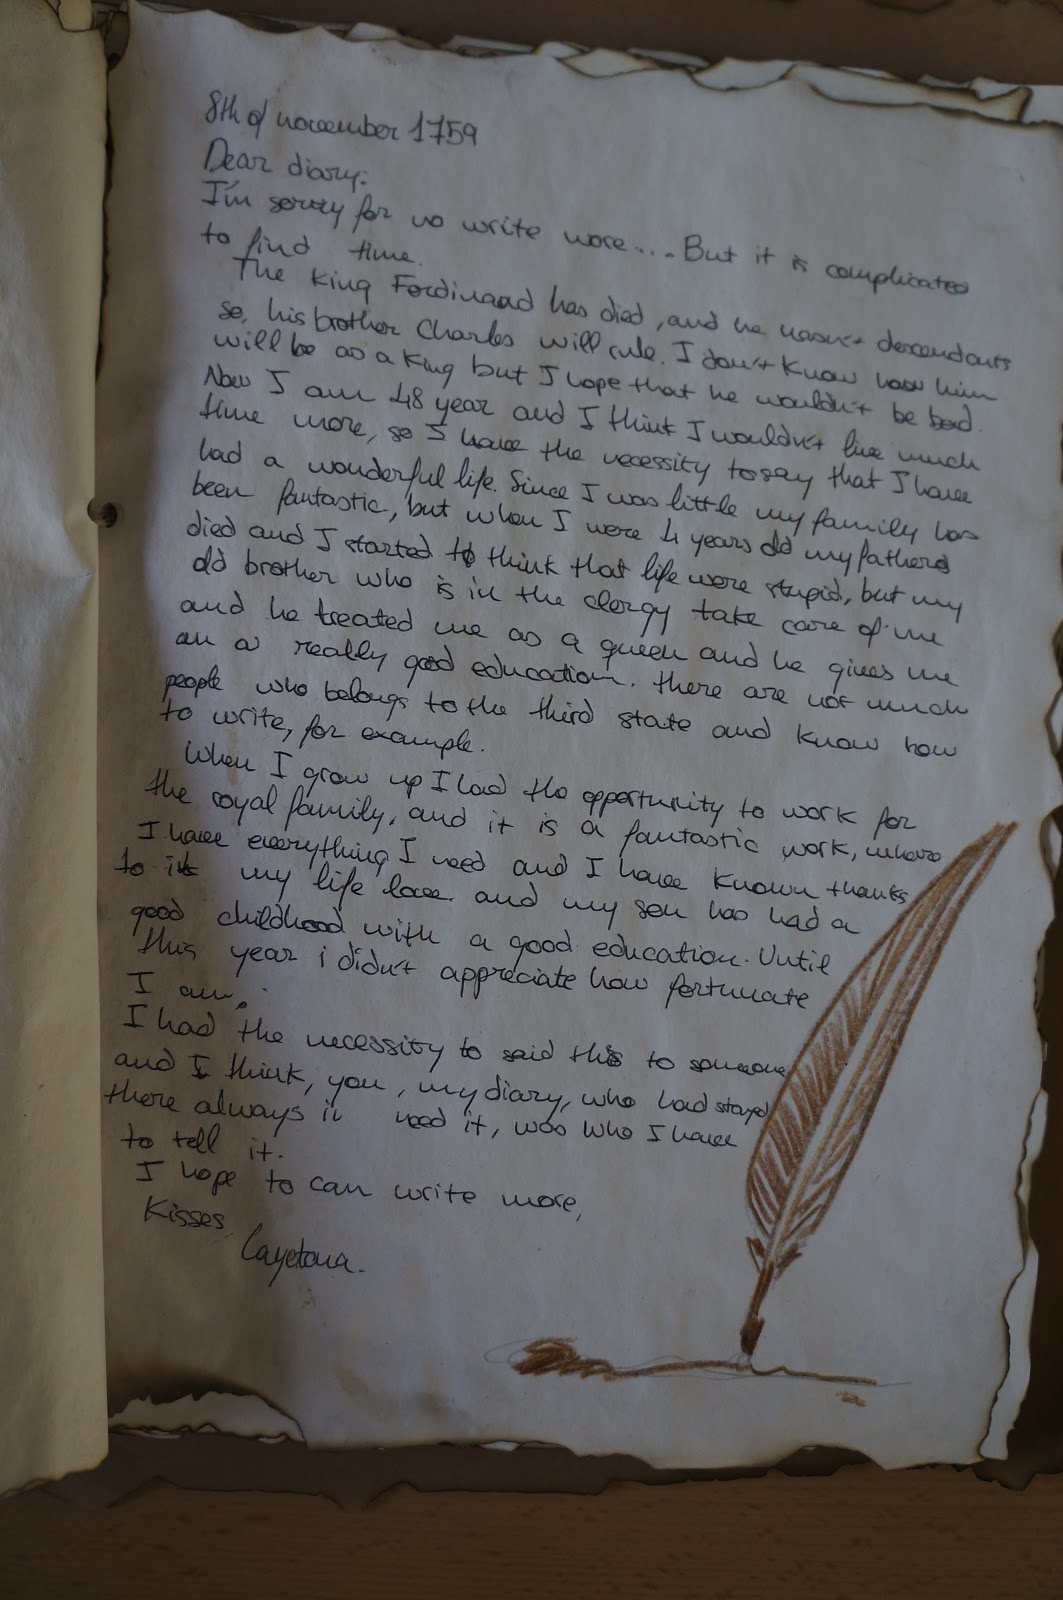 8th of november 1759
Dear diary:
I'm sorry for no write more... But it is complicated
to find time.
The King Ferdinand has died, and he hasn't descendants
so, his brother Charles will rule. I don't know how him
will be as a King but I hope that he wouldn't be bad.
Now I am 48 year and I think I wouldn't live much
time more, so I have the necessity to say that I have
had a wonderful life. Since I was little my family has
been fantastic, but when I were 4 years old my fathers
died and I started to think that life were stupid, but my
old brother who is in the clergy take care of me
and he treated me as a queen and he gives me
an a really good education. there are not much
people who belongs to the third state and know how
to write, for example.
When I grow up I had the opportunity to work for
the royal family, and it is a fantastic work, where
I have everything I need and I have known thanks
to it my life love and my son has had a
good childhood with a good education. Until
this year i didn't appreciate how fortunate
I am.
I had the necessity to said this to someone
and I think, you, my diary, who had stayed
there always i need it, was who I have
to tell it.
I hope to can write more,
Kisses,
Cayetana.